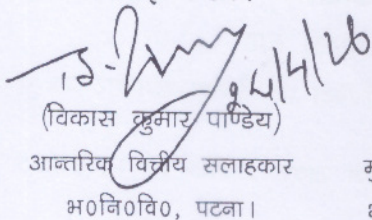 24/4/26
(विकास कुमार पाण्डेय)
आन्तरिक वित्तीय सलाहकार
भ०नि०वि०, पटना।